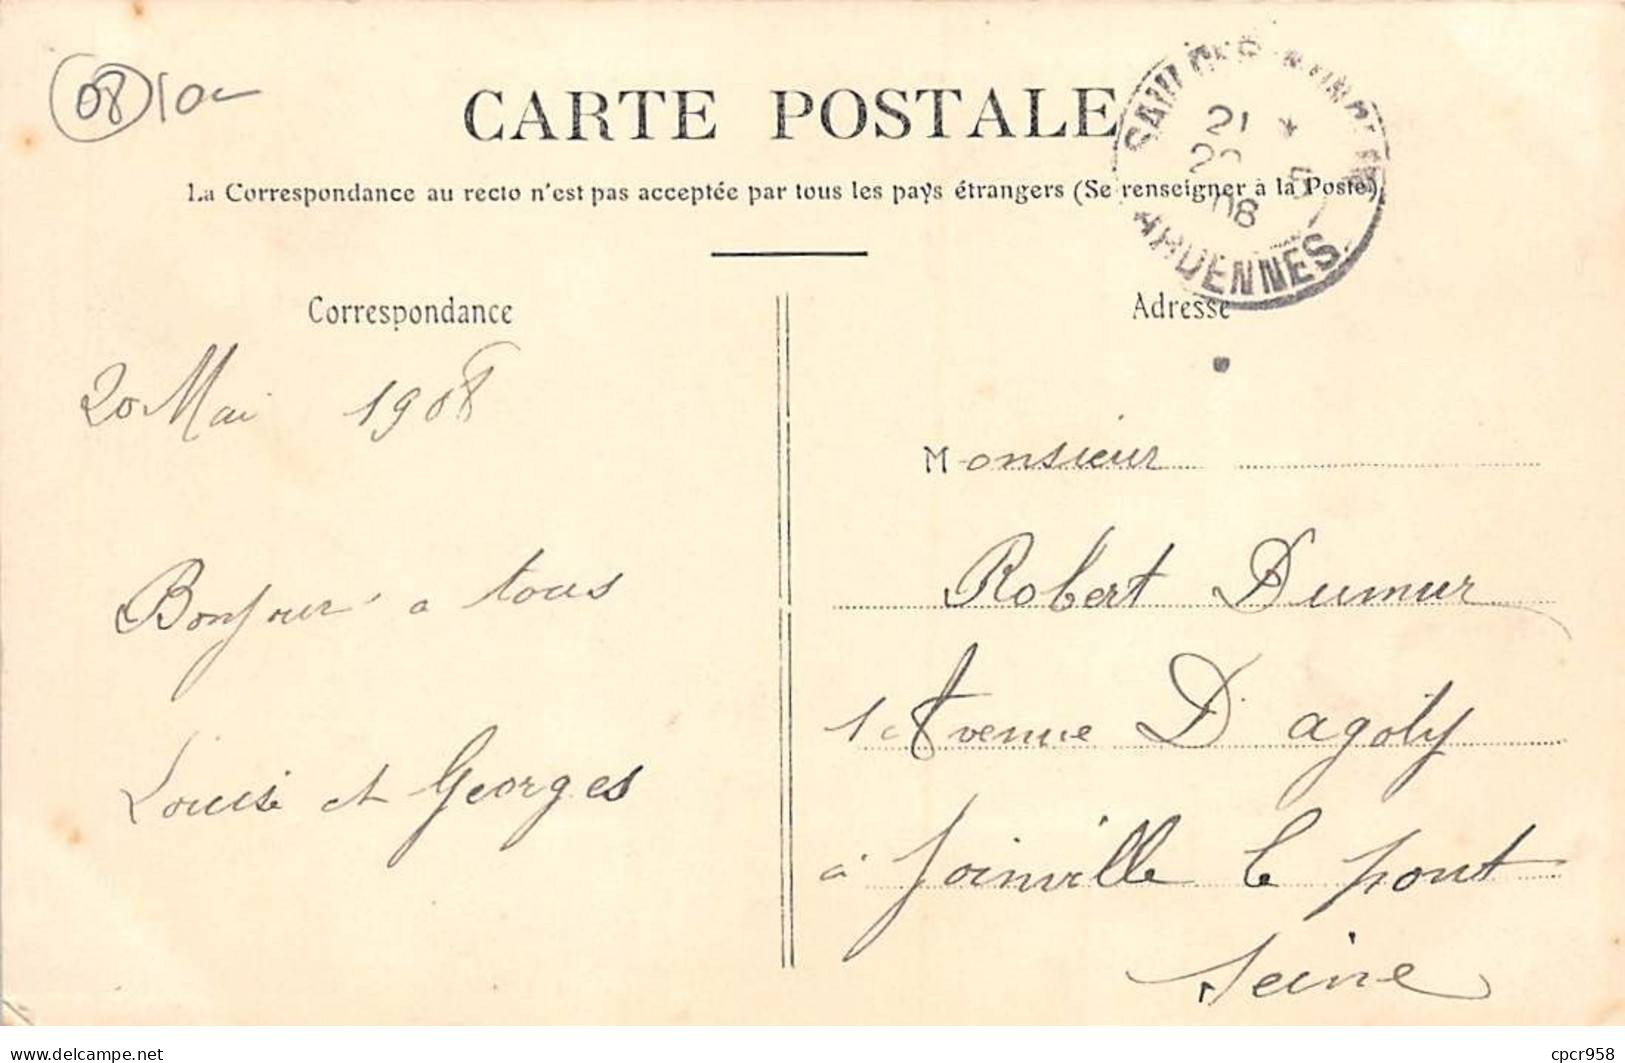 08 10
CARTE POSTALE
La Correspondance au recto n'est pas acceptée par tous les pays étrangers (Se renseigner à la Poste)
21 *
08
ARDENNES
Correspondance
Adresse
20 Mai 1908
Monsieur
Bonjour a tous
Robert Dumur
1 Avenue D'agoly
Louise et Georges
à Joinville le pont
Seine
delcampe.net
cpcr958